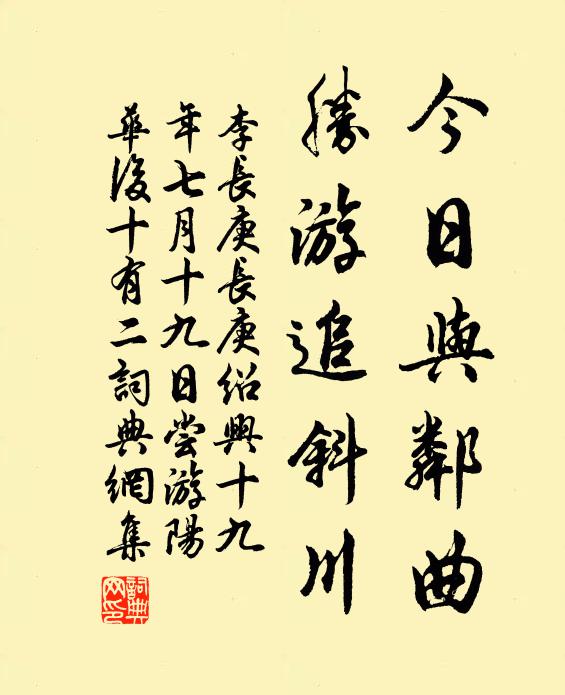 今日與鄰曲
勝游追斜川
李長庚長庚紹興十九
年七月十九日嘗游陽
華後十有二詞典網集